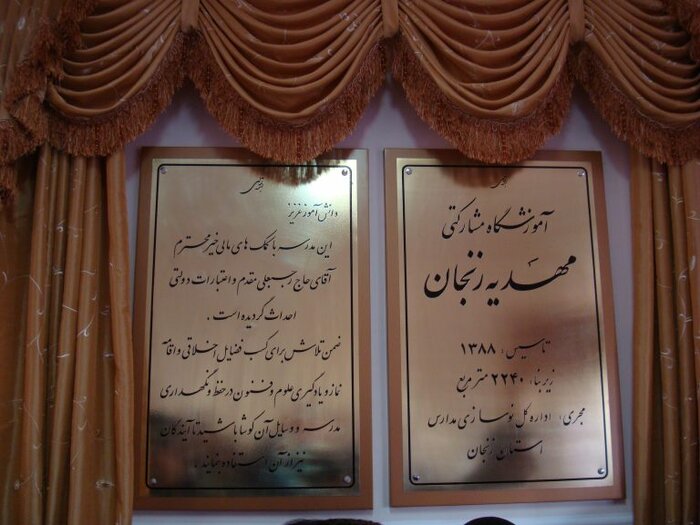 آموزشگاه مشارکتی
مهدیه زنجان
تاسیس: ۱۳۸۸
زیر بنا: ۲۲۴۰ متر مربع
مجری: اداره کل نوسازی مدارس
استان زنجان
دانش آموز عزیز
این مدرسه با کمک های مالی خیر محترم
آقای حاج رجبعلی مقدم و اعتبارات دولتی
احداث گردیده است .
ضمن تلاش برای کسب فضایل اخلاقی و اقامه
نماز و یادگیری علوم و فنون در حفظ و نگهداری
مدرسه و وسایل آن کوشا باشید تا آیندگان
نیز از آن استفاده نمایند